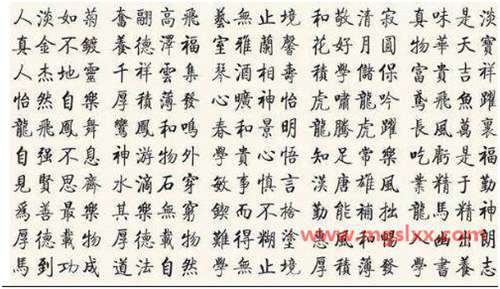 人淡如菊 奮翮高飛 藝無止境 和敬清寂 真味是淡
真金不鍍 養德澤福 室雅蘭馨 花好月圓 物華天寶
人杰地靈 千祥雲集 琴酒 壽 學儲 富貴吉祥
怡然自樂 厚積薄發 心曠神怡 虎嘯龍吟 鳶飛魚躍
龍飛鳳舞 鸞鳳和鳴 春和景明 龍騰虎躍 長風萬裏
自强不息 神游物外 學貴心悟 知足常樂 吃虧是福
見賢思齊 水滴石穿 敏事慎言 漢唐雄風 業精于勤
爲善最樂 其樂無窮 鍥而不捨 勤能補拙 龍馬精神
厚德載物 德載物 難得糊塗 惠風和暢 人 幽出朗
馬到功成 道德法自然 學無止境 厚積薄發 書養志